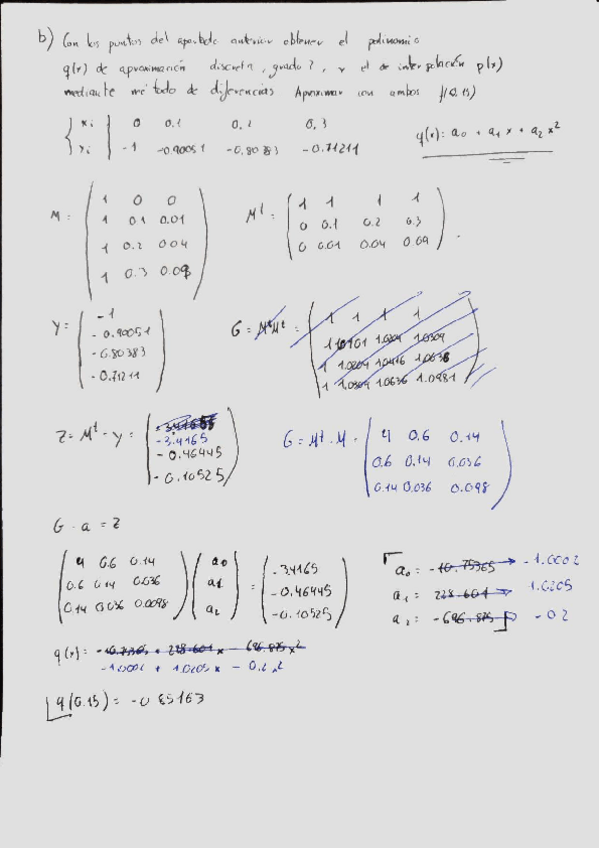 b) Con los puntos del apartado anterior obtener el polinomio
q(x) de aproximación discreta, grado 2, y el de interpolación p(x)
mediante método de diferencias Aproximar con ambos f(0.15)
xi 0 0.1 0.2 0.3
yi -1 -0.90051 -0.80383 -0.71211
q(x): a0 + a1 x + a2 x²
M = ( 1 0 0
1 0.1 0.01
1 0.2 0.04
1 0.3 0.09 )
Mᵗ = ( 1 1 1 1
0 0.1 0.2 0.3
0 0.01 0.04 0.09 ).
Y = ( -1
-0.90051
-0.80383
-0.71211 )
G = MᵗMᵗ = ( 1 1 1 1
1 1.0101 1.0204 1.0309
1 1.0204 1.0416 1.0636
1 1.0309 1.0636 1.0981 )
Z = Mᵗ · y = ( -3.4165
-0.46445
-0.10525 )
G = Mᵗ · M = ( 4 0.6 0.14
0.6 0.14 0.036
0.14 0.036 0.098 )
G · a = Z
( 4 0.6 0.14
0.6 0.14 0.036
0.14 0.036 0.0098 ) ( a0
a1
a2 ) = ( -3.4165
-0.46445
-0.10525 )
a0 = -10.75365 → -1.0002
a1 = 228.601 → 1.0205
a2 = -696.875 → -0.2
q(x) = -10.75365 + 228.601x - 696.875x²
-1.0002 + 1.0205x - 0.2x²
q(0.15) = -0.85163